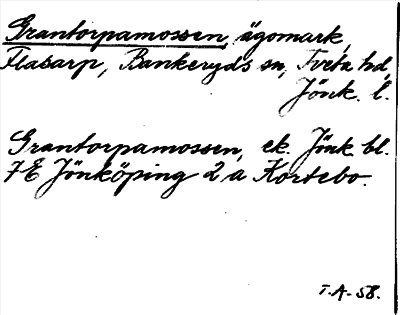 Grantorpamossen, ägomark,
Flasarp, Bankeryds sn, Tveta hd,
Jönk. l.
Grantorpamossen, ek. Jönk bl.
7E Jönköping 2 a Kortebo.
T.A-58.